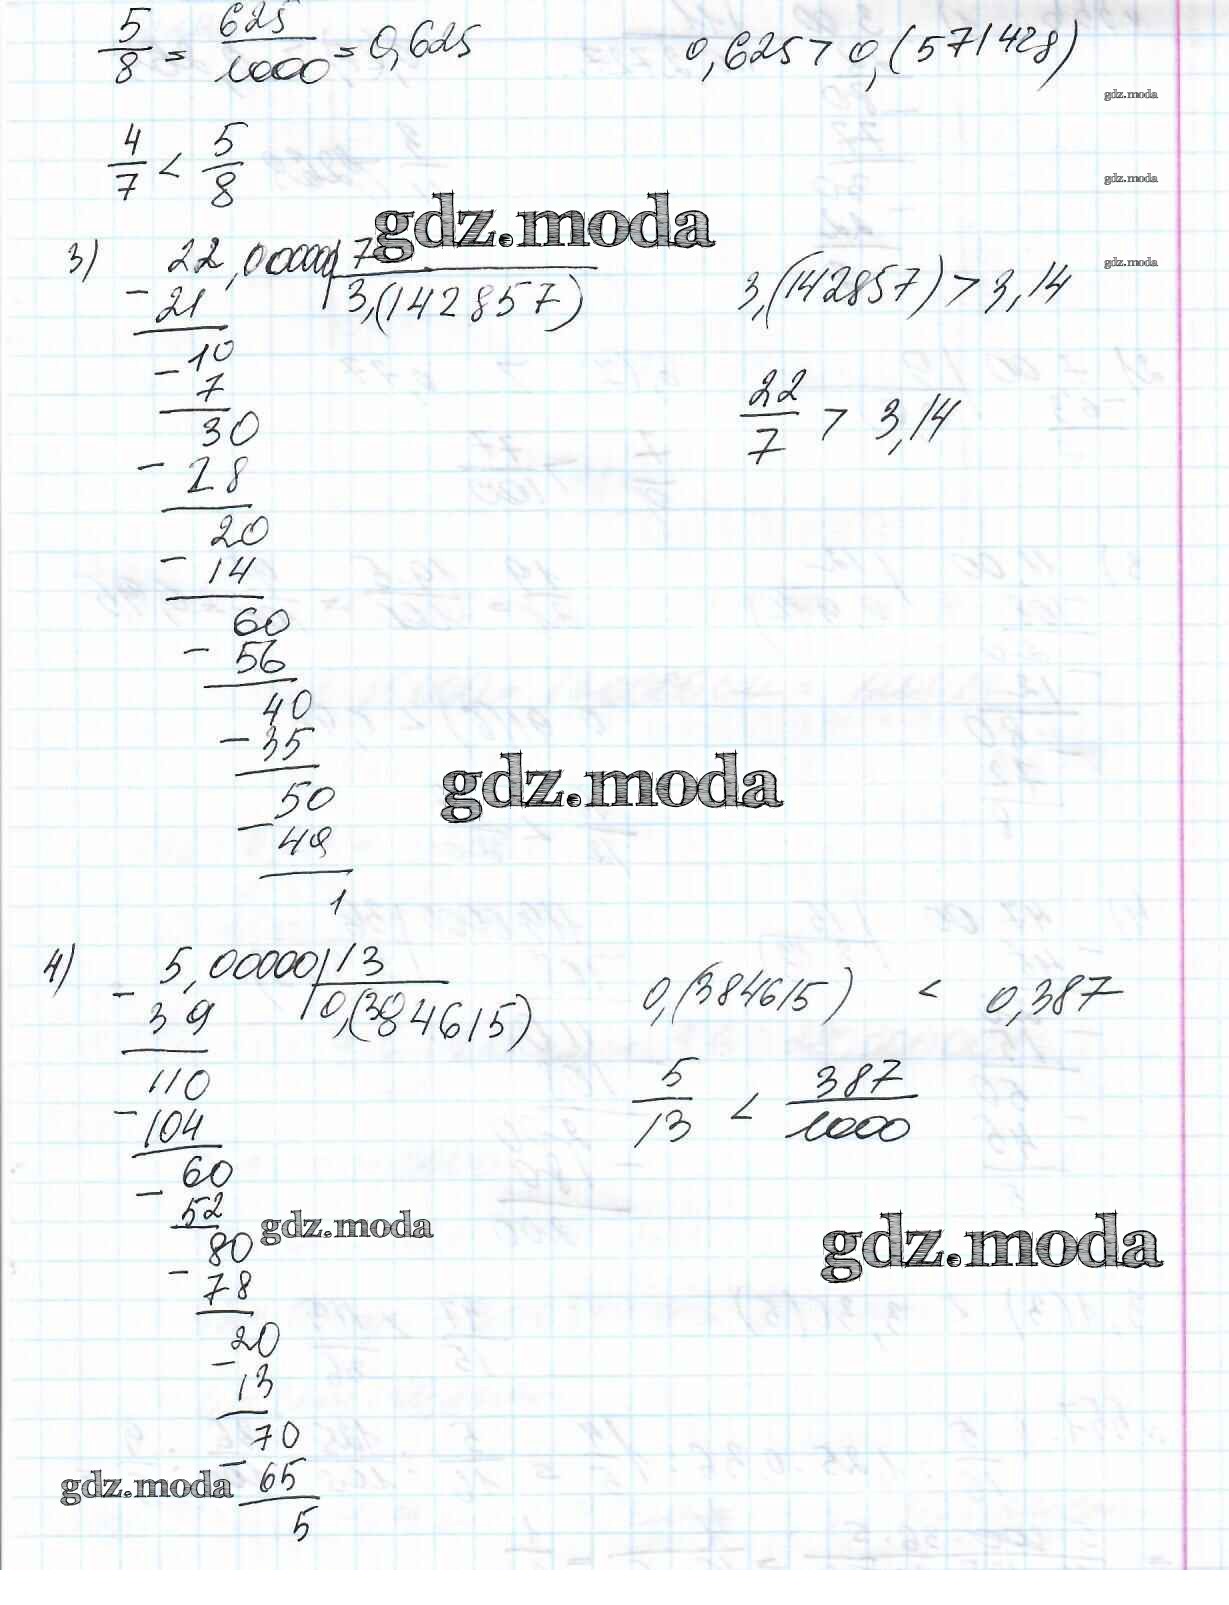 5/8 = 625/1000 = 0,625
0,625 > 0,(571428)
gdz.moda
4/7 < 5/8
gdz.moda
gdz.moda
3) 22,00000 | 7
3,(142857)
3,(142857) > 3,14
gdz.moda
- 21
- 10
7
22/7 > 3,14
30
- 28
20
- 14
60
- 56
40
- 35
50
- 49
1
gdz.moda
4) 5,00000 | 13
0,(384615)
0,(384615) < 0,387
- 39
110
- 104
5/13 < 387/1000
60
- 52
80
gdz.moda
gdz.moda
- 78
20
- 13
70
- 65
5
gdz.moda